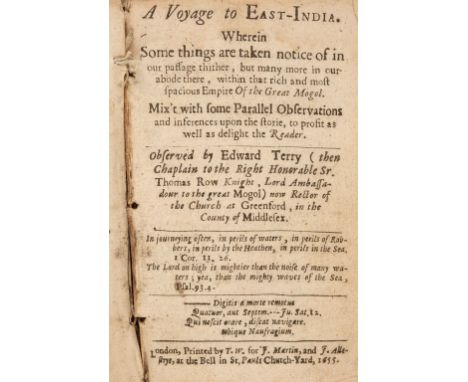 A Voyage to EAST-INDIA.
Wherein
Some things are taken notice of in
our passage thither, but many more in our
abode there, within that rich and most
spacious Empire Of the Great Mogol.
Mix't with some Parallel Observations
and inferences upon the storie, to profit as
well as delight the Reader.
Observed by Edward Terry (then
Chaplain to the Right Honorable Sr.
Thomas Row Knight, Lord Ambassa-
dour to the great Mogol) now Rector of
the Church at Greenford, in the
County of Middlesex.
In journeying often, in perils of waters, in perils of Rob-
bers, in perils by the Heathen, in perils in the Sea.
1 Cor. 11. 26.
The Lord on high is mightier than the noise of many wa-
ters; yea, than the mighty waves of the Sea,
Psal. 93.4.
Digitis a morte remotus
Quatuor, aut Septem.---Ju. Sat. 12.
Qui nescit orare, discat navigare.
Ubique Naufragium.
London, Printed by T. W. for J. Martin, and J. Alle-
strye, at the Bell in St. Pauls Church-Yard, 1655.